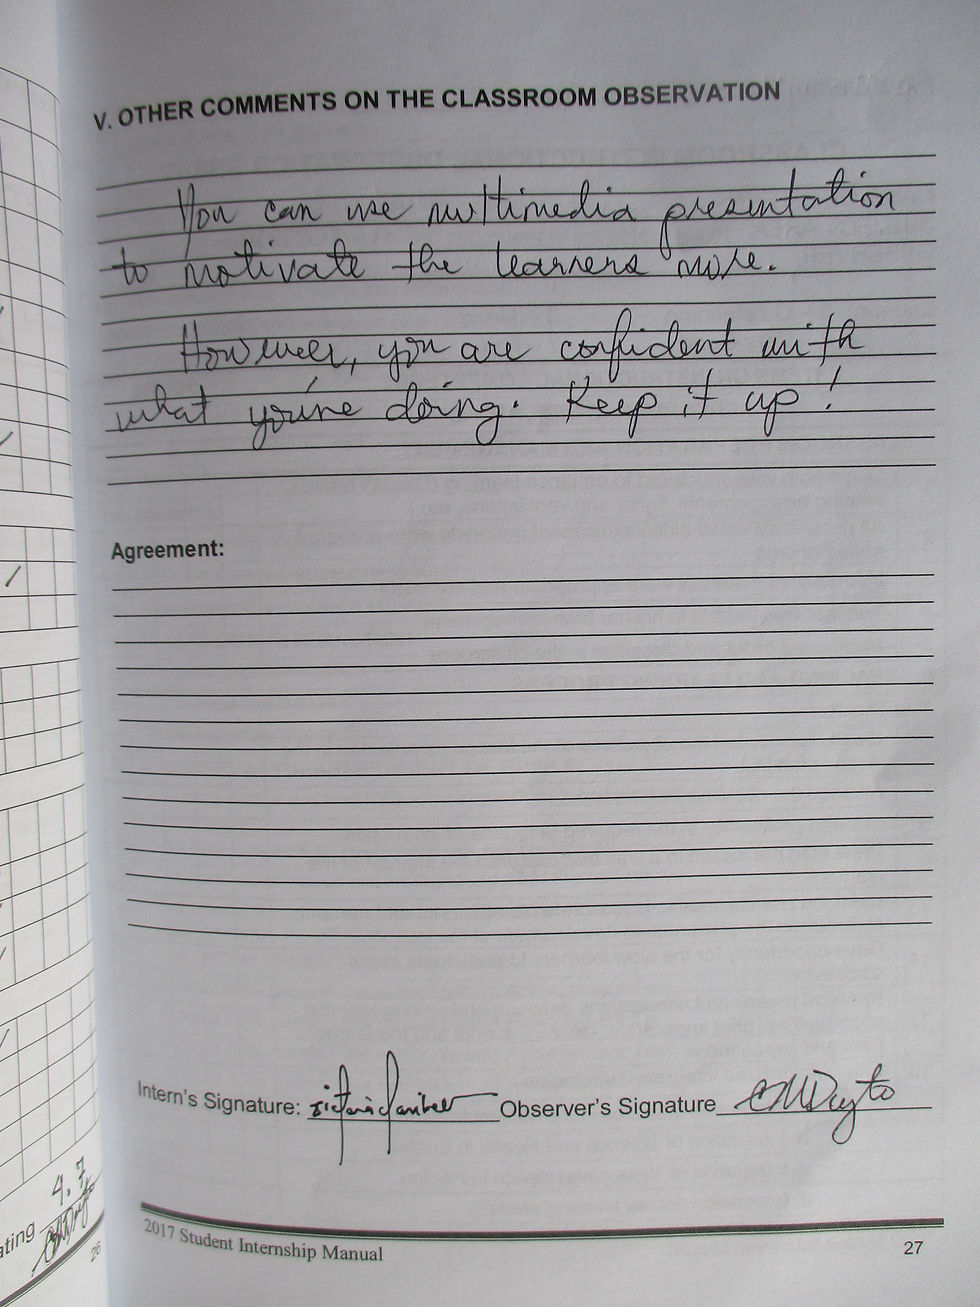 V. OTHER COMMENTS ON THE CLASSROOM OBSERVATION
You can use multimedia presentation
to motivate the learners more.
However, you are confident with
what you're doing. Keep it up!
Agreement:
Intern's Signature:
Observer's Signature
2017 Student Internship Manual
27
4.7
ating
26